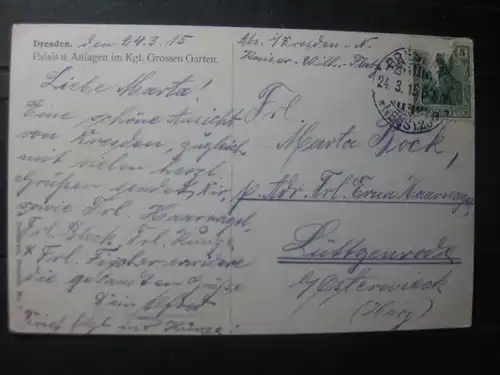 Dresden. den 24.3.15
Palais u. Anlagen im Kgl. Grossen Garten.
Liebe Marta!
Eine schöne Ansicht
von Dresden, zugleich
mit vielen herzl.
Grüßen sendet Dir,
sowie Frl. Haarnagel,
Frl. Block, Frl. Kunze
& Frl. Fischer
die Grüße
Dein Alfred
Brief folgt in Kürze!
Abs. Dresden-N.
Kaiser-Wilh.-Platz
Frl.
Marta Bock,
p. Adr. Frl. Erna Haarnagel,
Lüttgenrode
b/Osterwieck
(Harz)
24. 3. 15
5